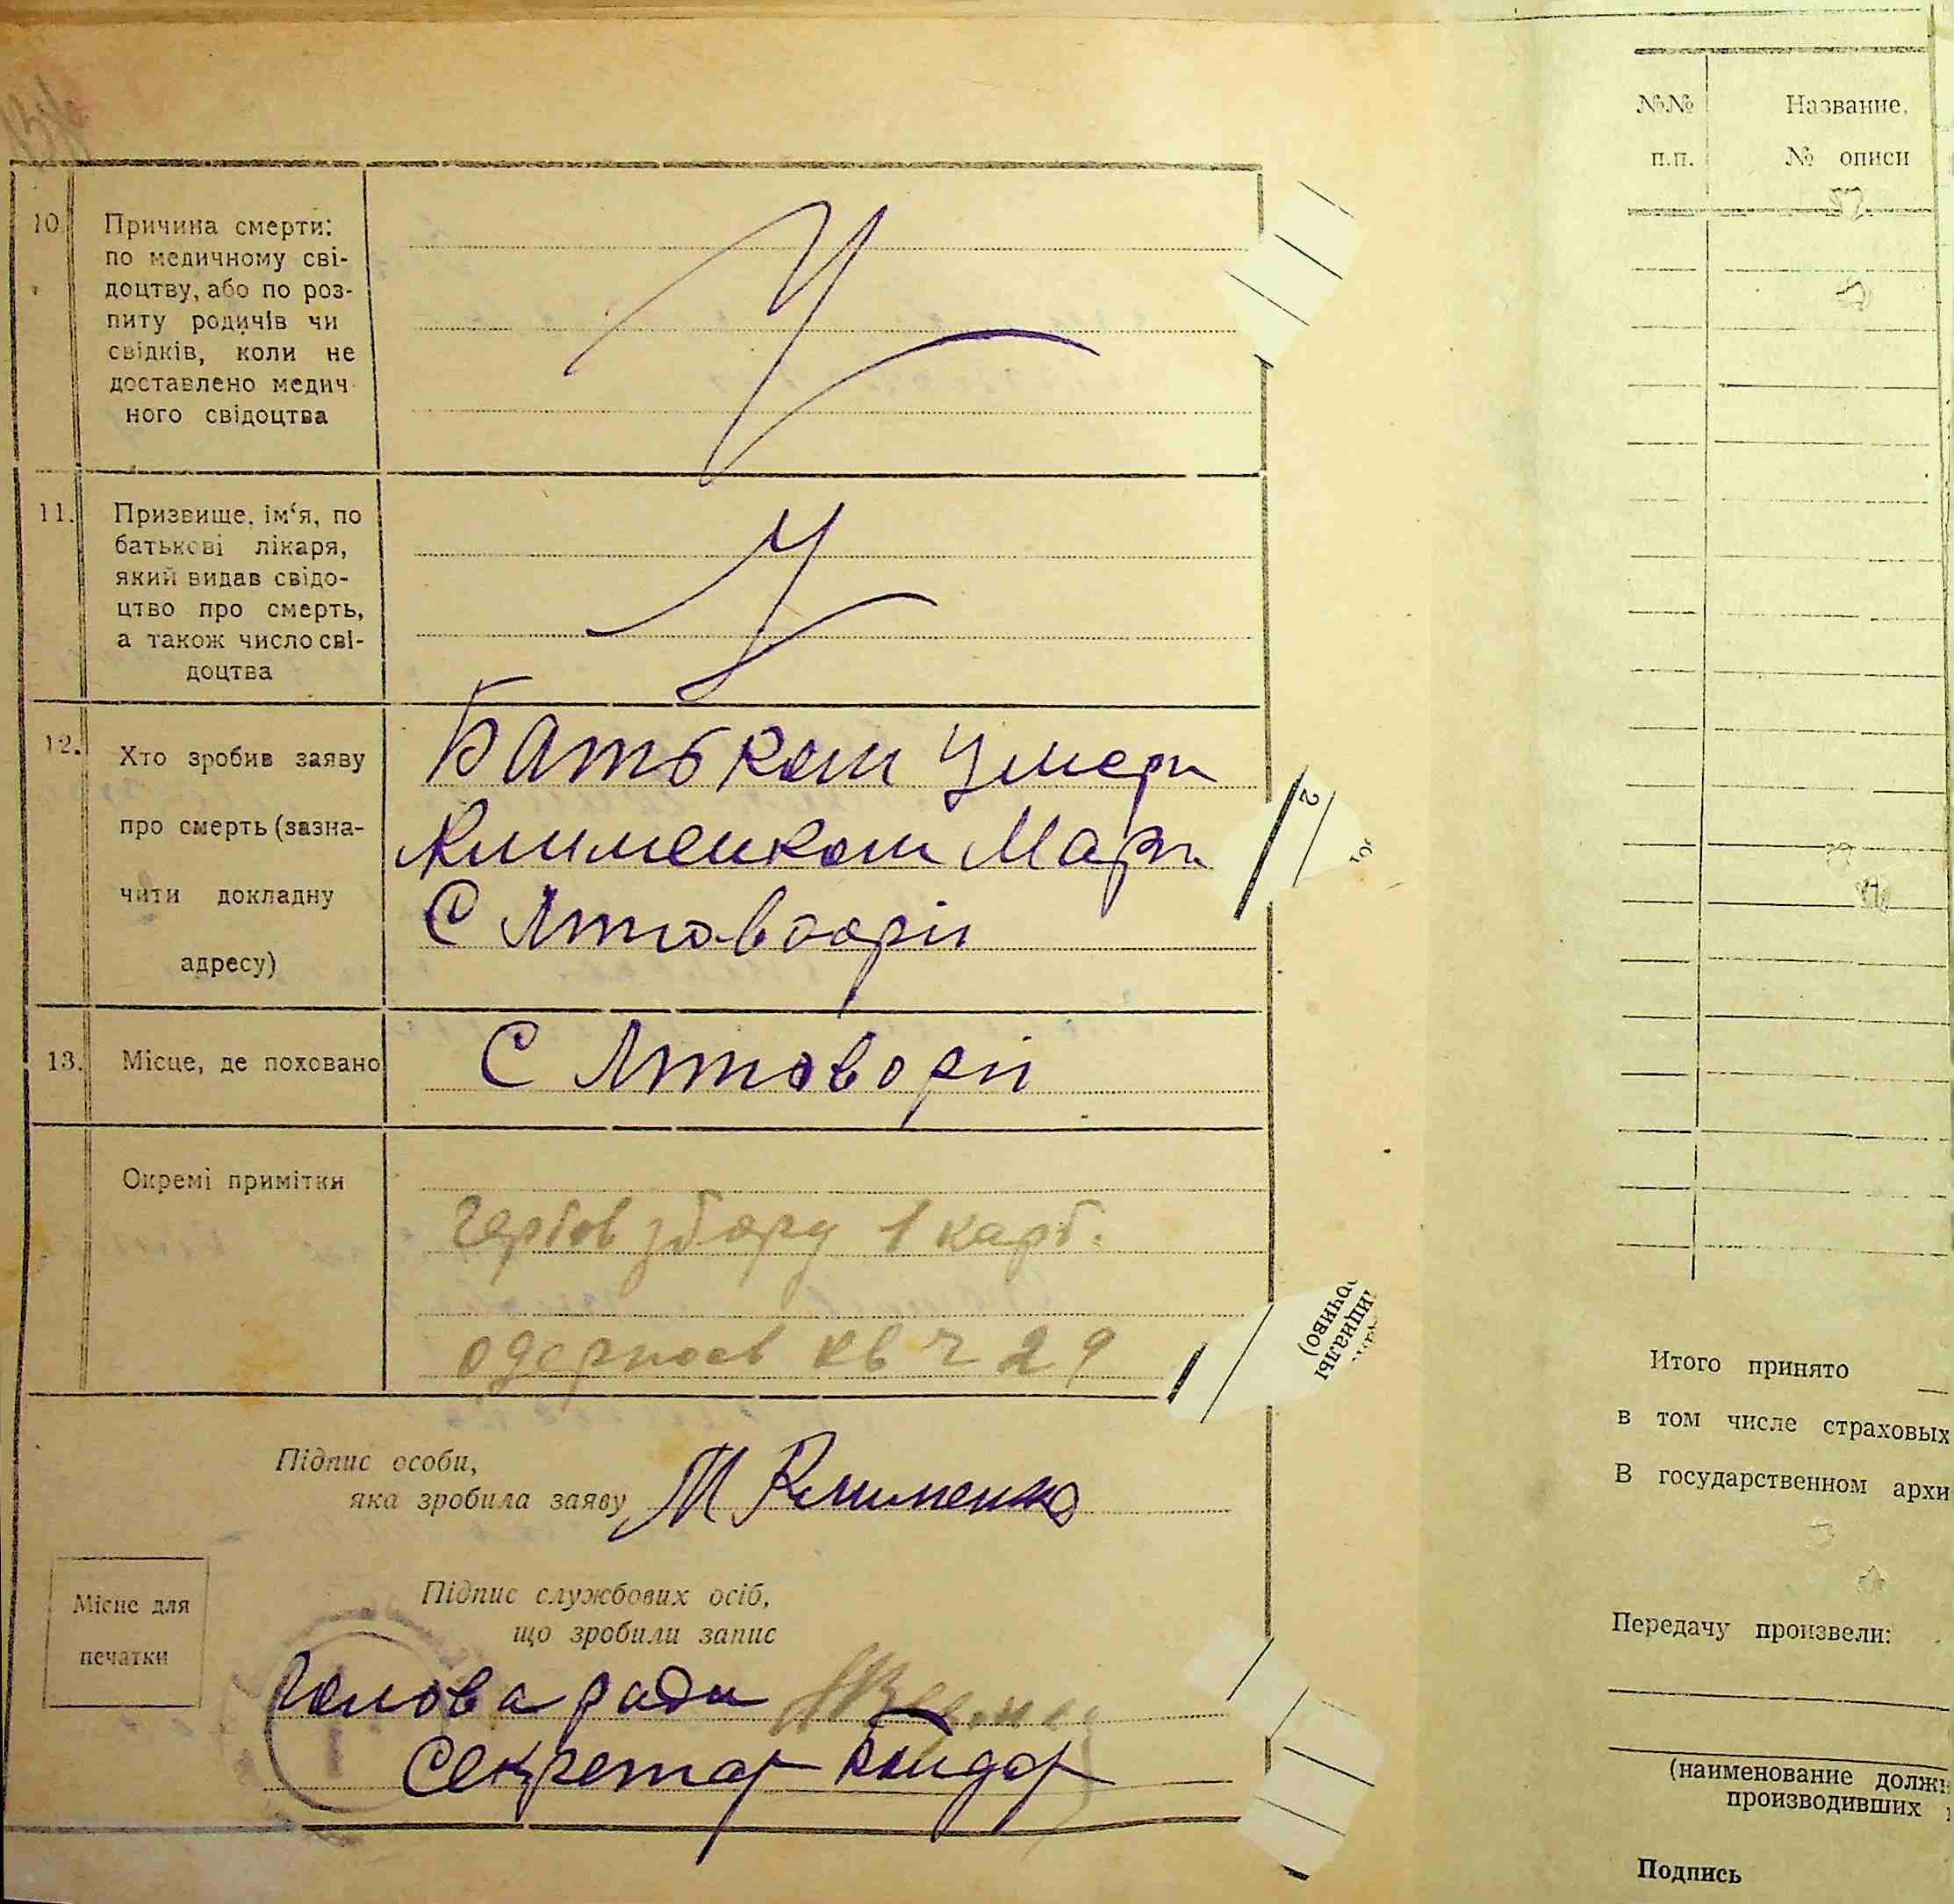 10
Причина смерти:
по медичному сві-
доцтву, або по роз-
питу родичів чи
свідків, коли не
доставлено медич
ного свідоцтва
11.
Призвище, ім‘я, по
батькові лікаря,
який видав свідо-
цтво про смерть,
а також число сві-
доцтва
12.
Хто зробив заяву
про смерть (зазна-
чити докладну
адресу)
Батьком Умерл
Клименком Марк
С Лттовори
13.
Місце, де поховано
С Лттовори
Окремі примітки
Гербов збору 1 карб.
одержав кв ч 29
Підпис особи,
яка зробила заяву М Клименко
Місце для
печатки
Підпис службових осіб,
що зробили запис
Голова ради
Секретар Бондар
2
ициалы
очиво)
№№
п.п.
Название,
№ описи
Итого принято
в том числе страховых
В государственном архи
Передачу произвели:
(наименование должн
производивших
Подпись